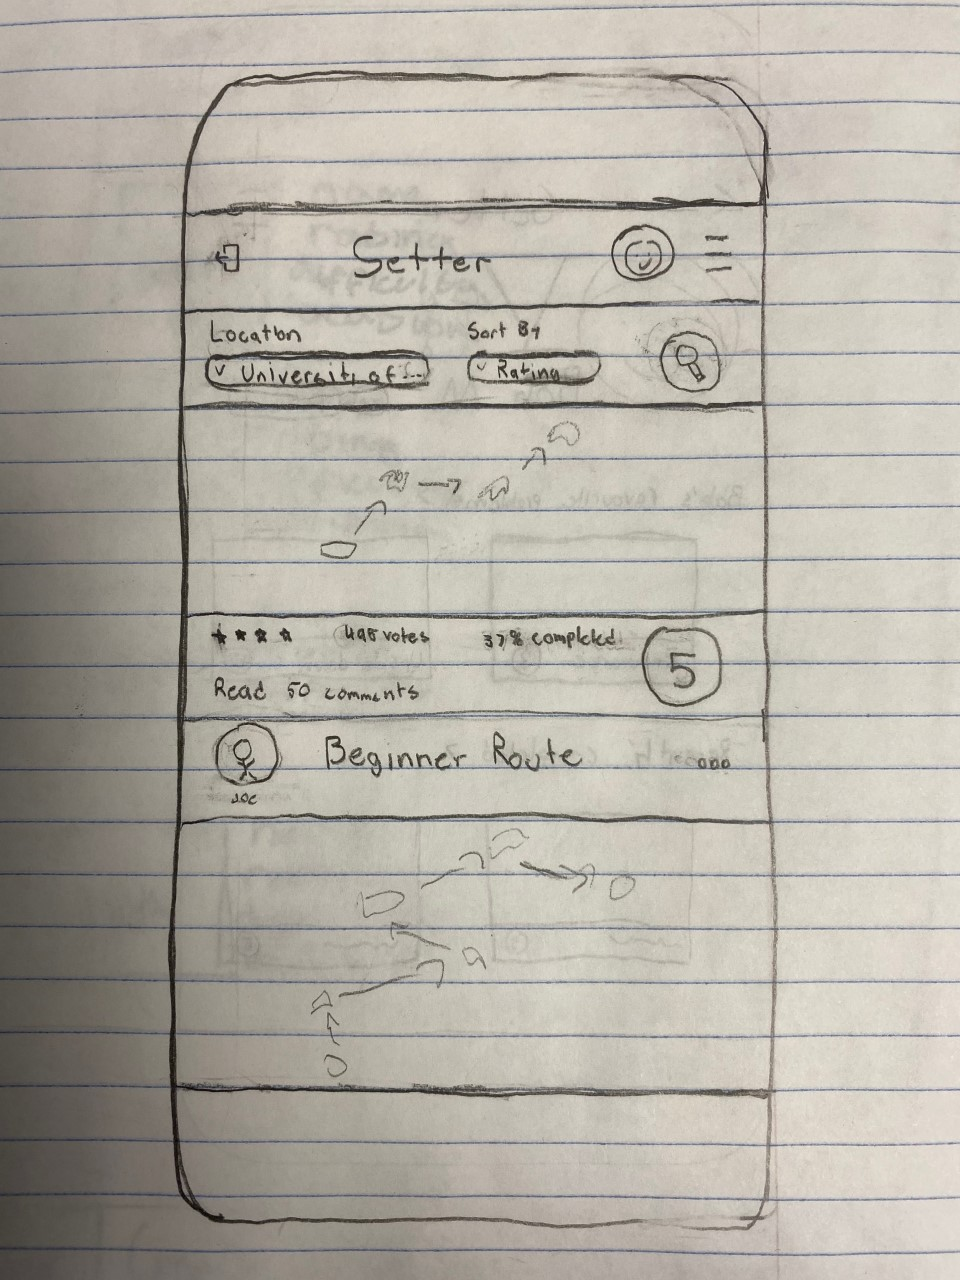 Setter
Location
Sort By
University of...
Rating
498 votes
37% completed
5
Read 50 comments
Beginner Route
Joe